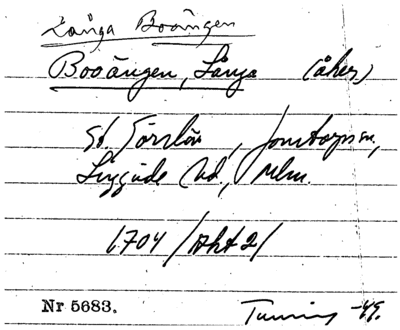 Långa Booängen
Booängen, Långa (åker)
St. Törslöv, Jonstorps sn,
Luggude hd, Mlm.
1704 /Akt 2/
Nr 5683.
Tuning -49.